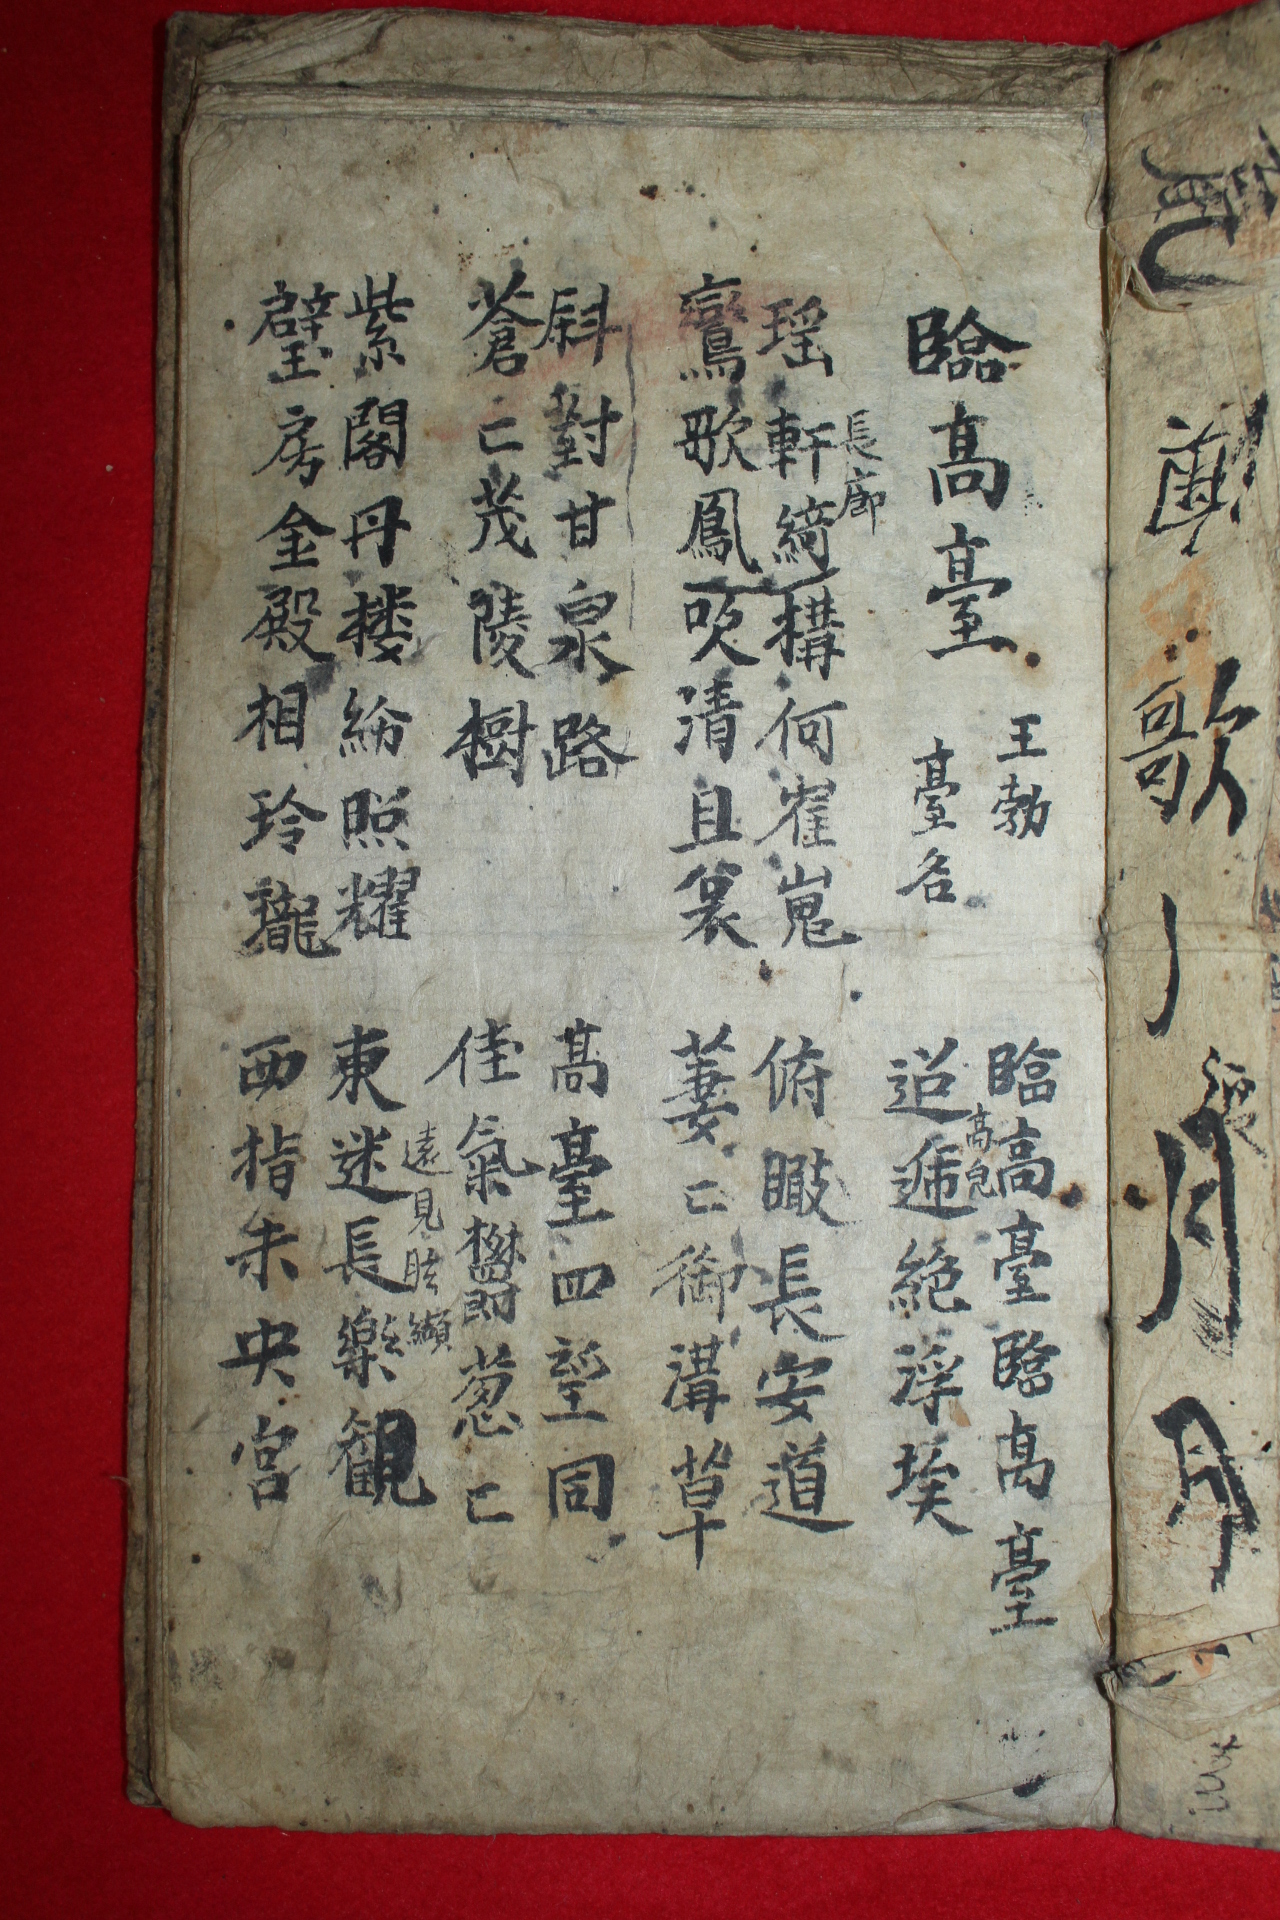 臨高臺
王勃
臺名
臨高臺臨高臺
迢遞絕浮埃
高皃
瑶軒綺構何崔嵬
長廊
鸞歌鳳吹清且哀
俯瞰長安道
萋〻御溝草
斜對甘泉路
蒼〻茂陵樹
高臺四望同
佳氣欝葱〻
紫閣丹楼紛照耀
璧房金殿相玲瓏
東迷長樂観
遠見眩纈
西指未央宮
歌
月